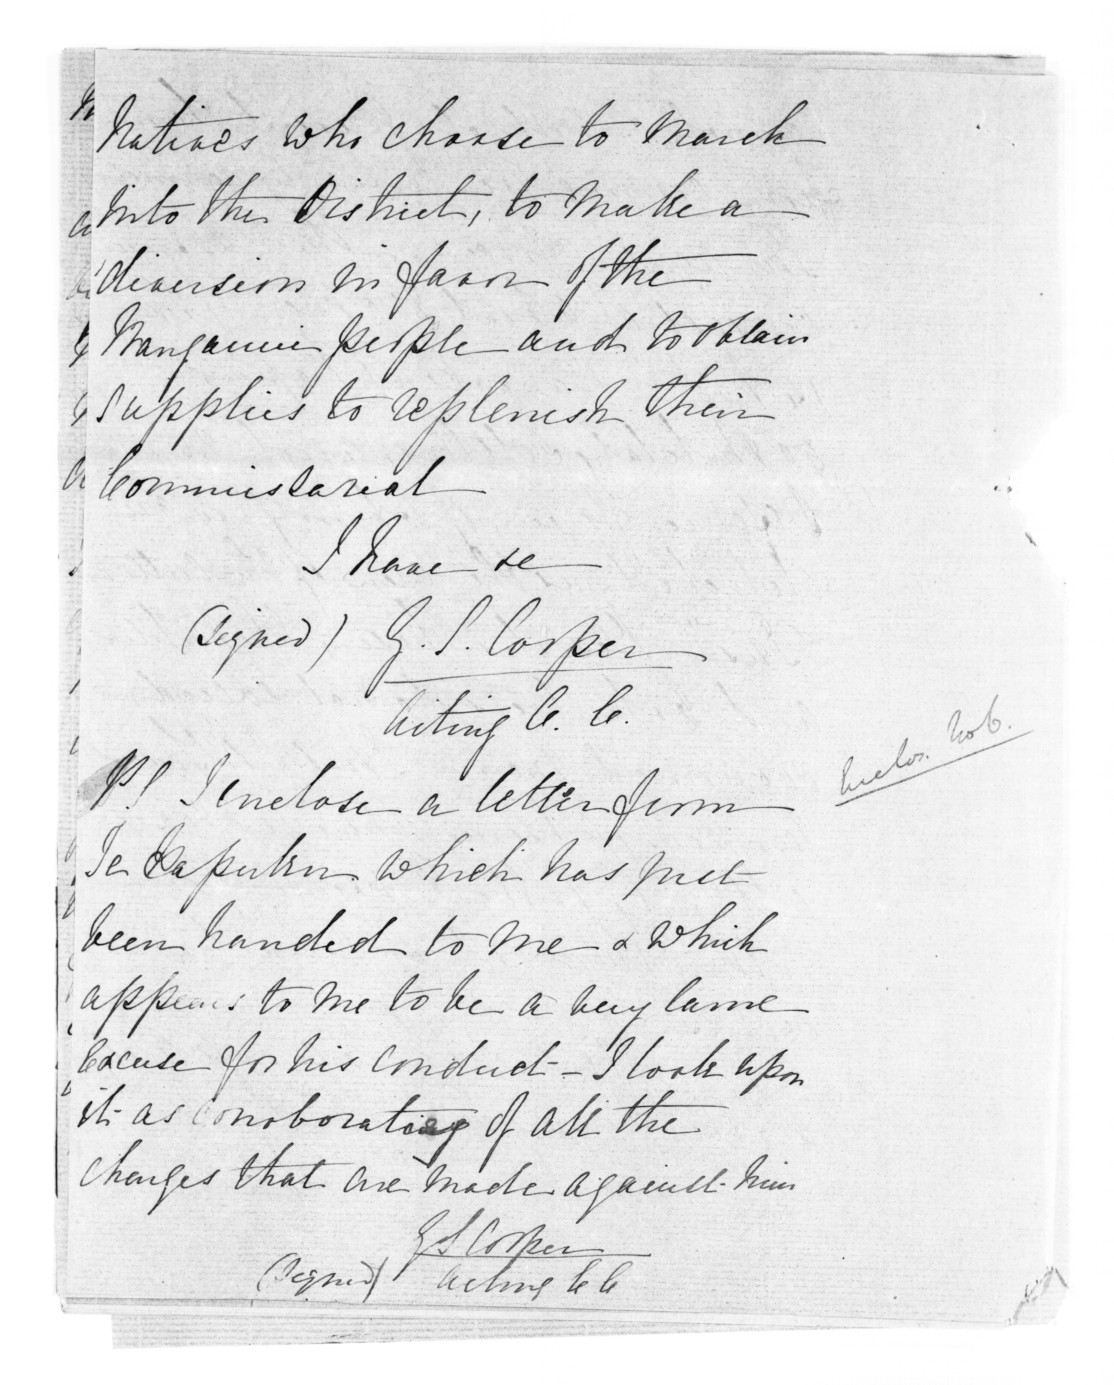 Natives who choose to march
into the District, to make a
diversion in favor of the
Wanganui people and to obtain
supplies to replenish their
Commissariat
I have &c
(signed) G. S. Cooper
Acting C. C.
Enclos. No 6.
P.S I enclose a letter from
Te Hapuku which has just
been handed to me & which
appears to me to be a very lame
excuse for his conduct - I look upon
it as corroborating of all the
charges that are made against him
G S Cooper
(signed) Acting C C